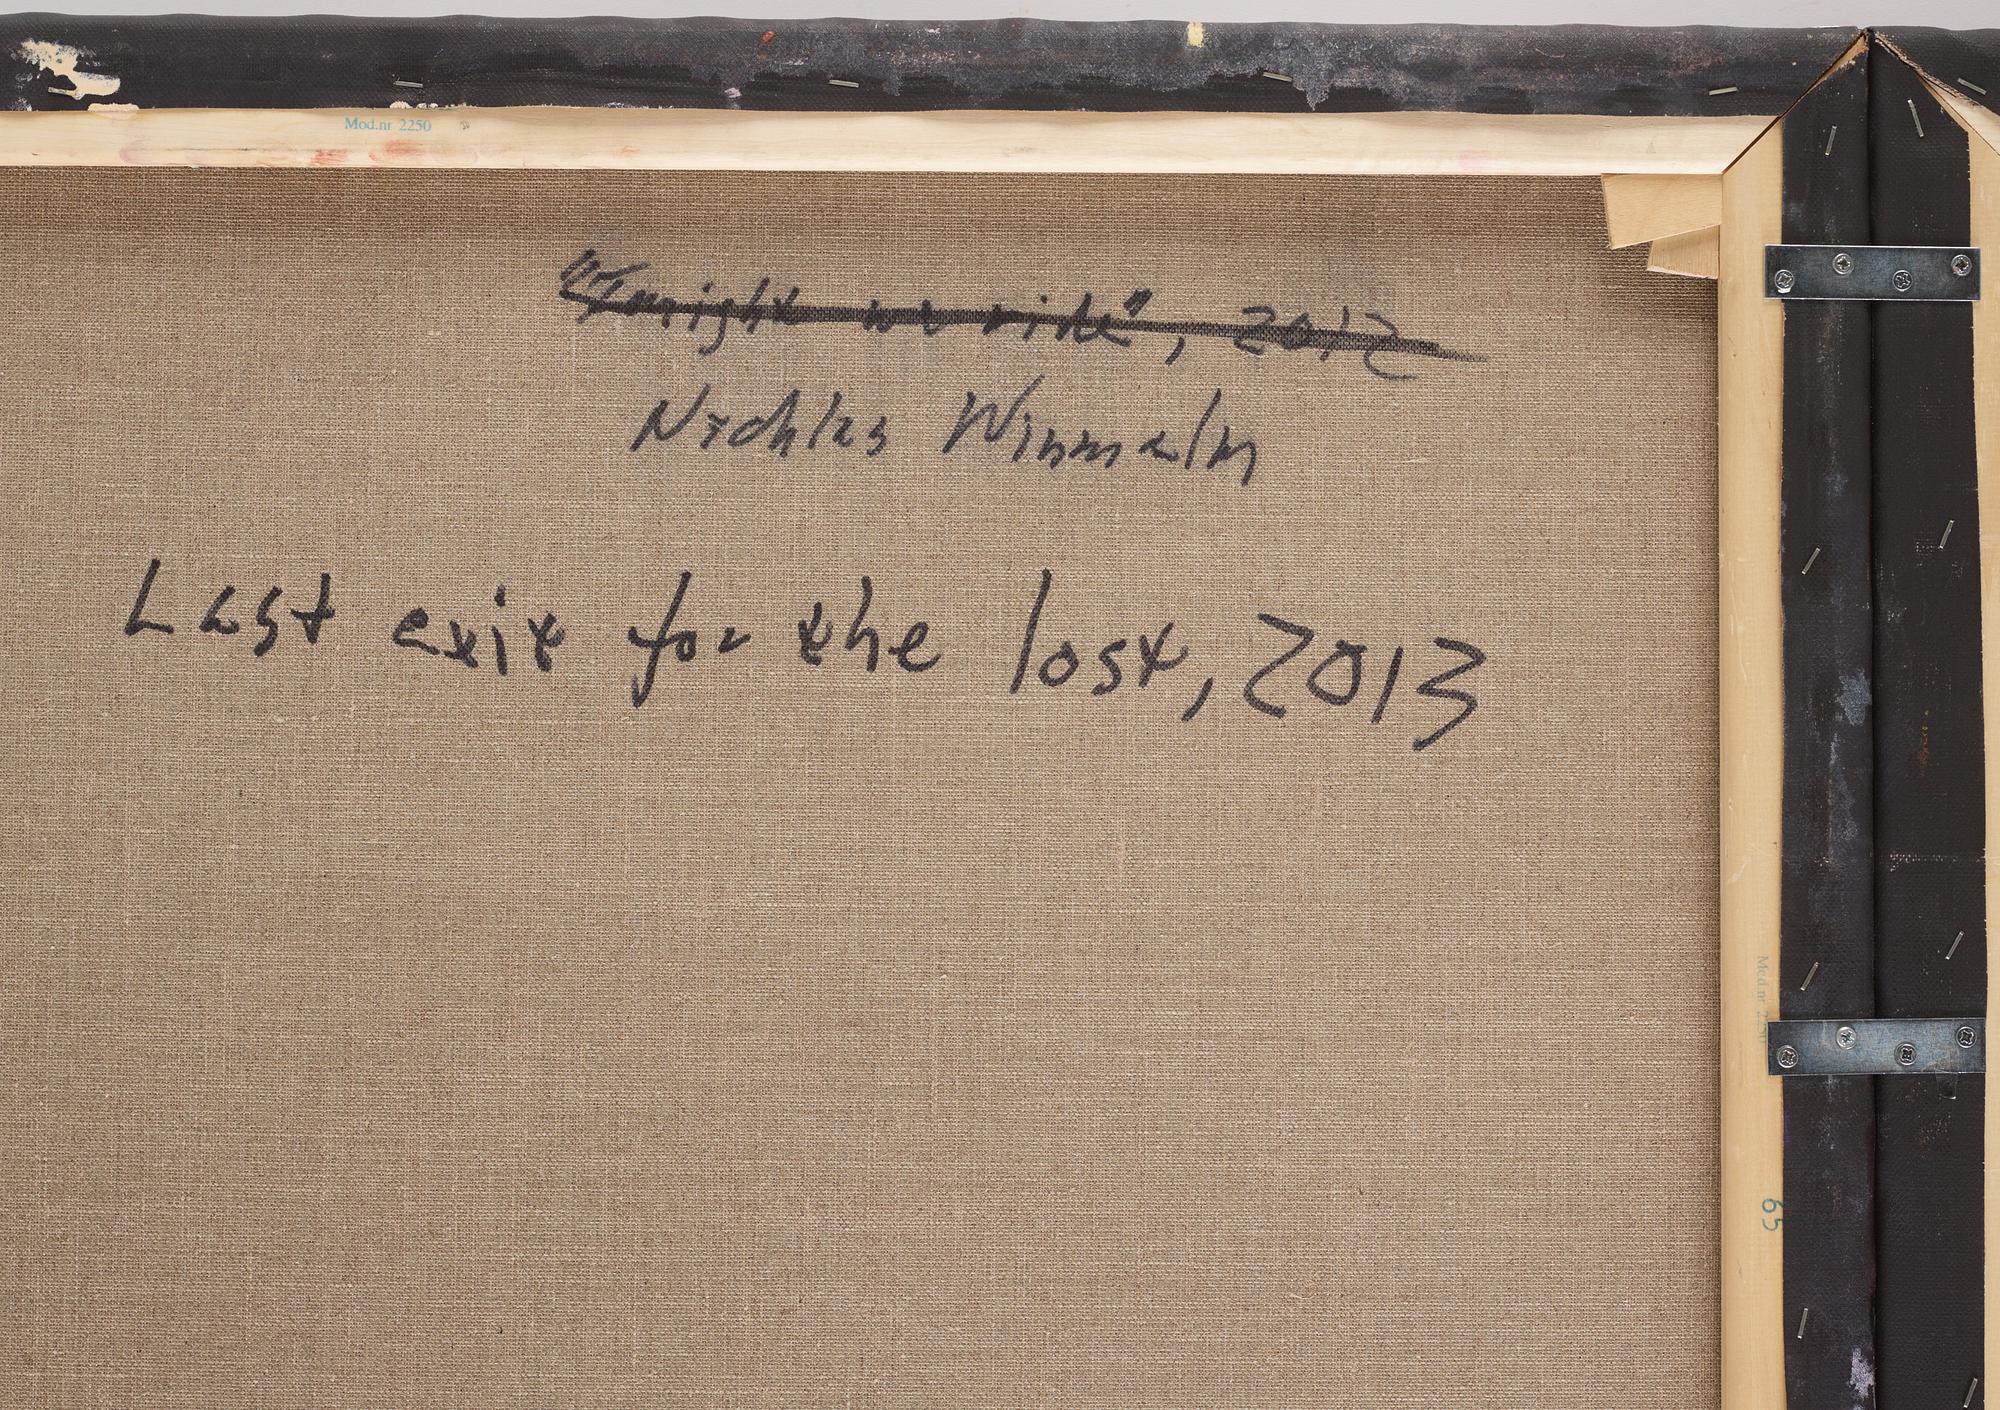 Mod.nr 2250
"Tonight we ride", 2012
Nicklas Wimmalm
Last exit for the lost, 2013
Mod.nr 2250
65